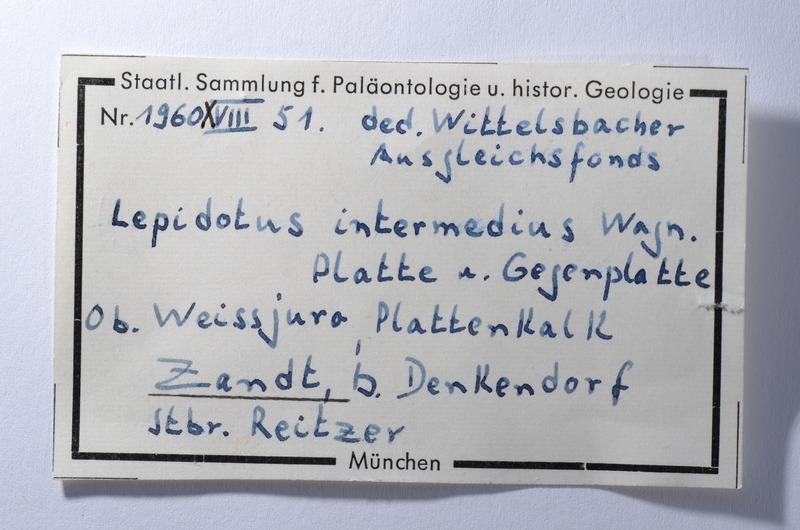 Staatl. Sammlung f. Paläontologie u. histor. Geologie
Nr. 1960 XVIII 51. ded. Wittelsbacher
Ausgleichsfonds
Lepidotus intermedius Wagn.
Platte u. Gegenplatte
Ob. Weissjura, Plattenkalk
Zandt, b. Denkendorf
Stbr. Reitzer
München